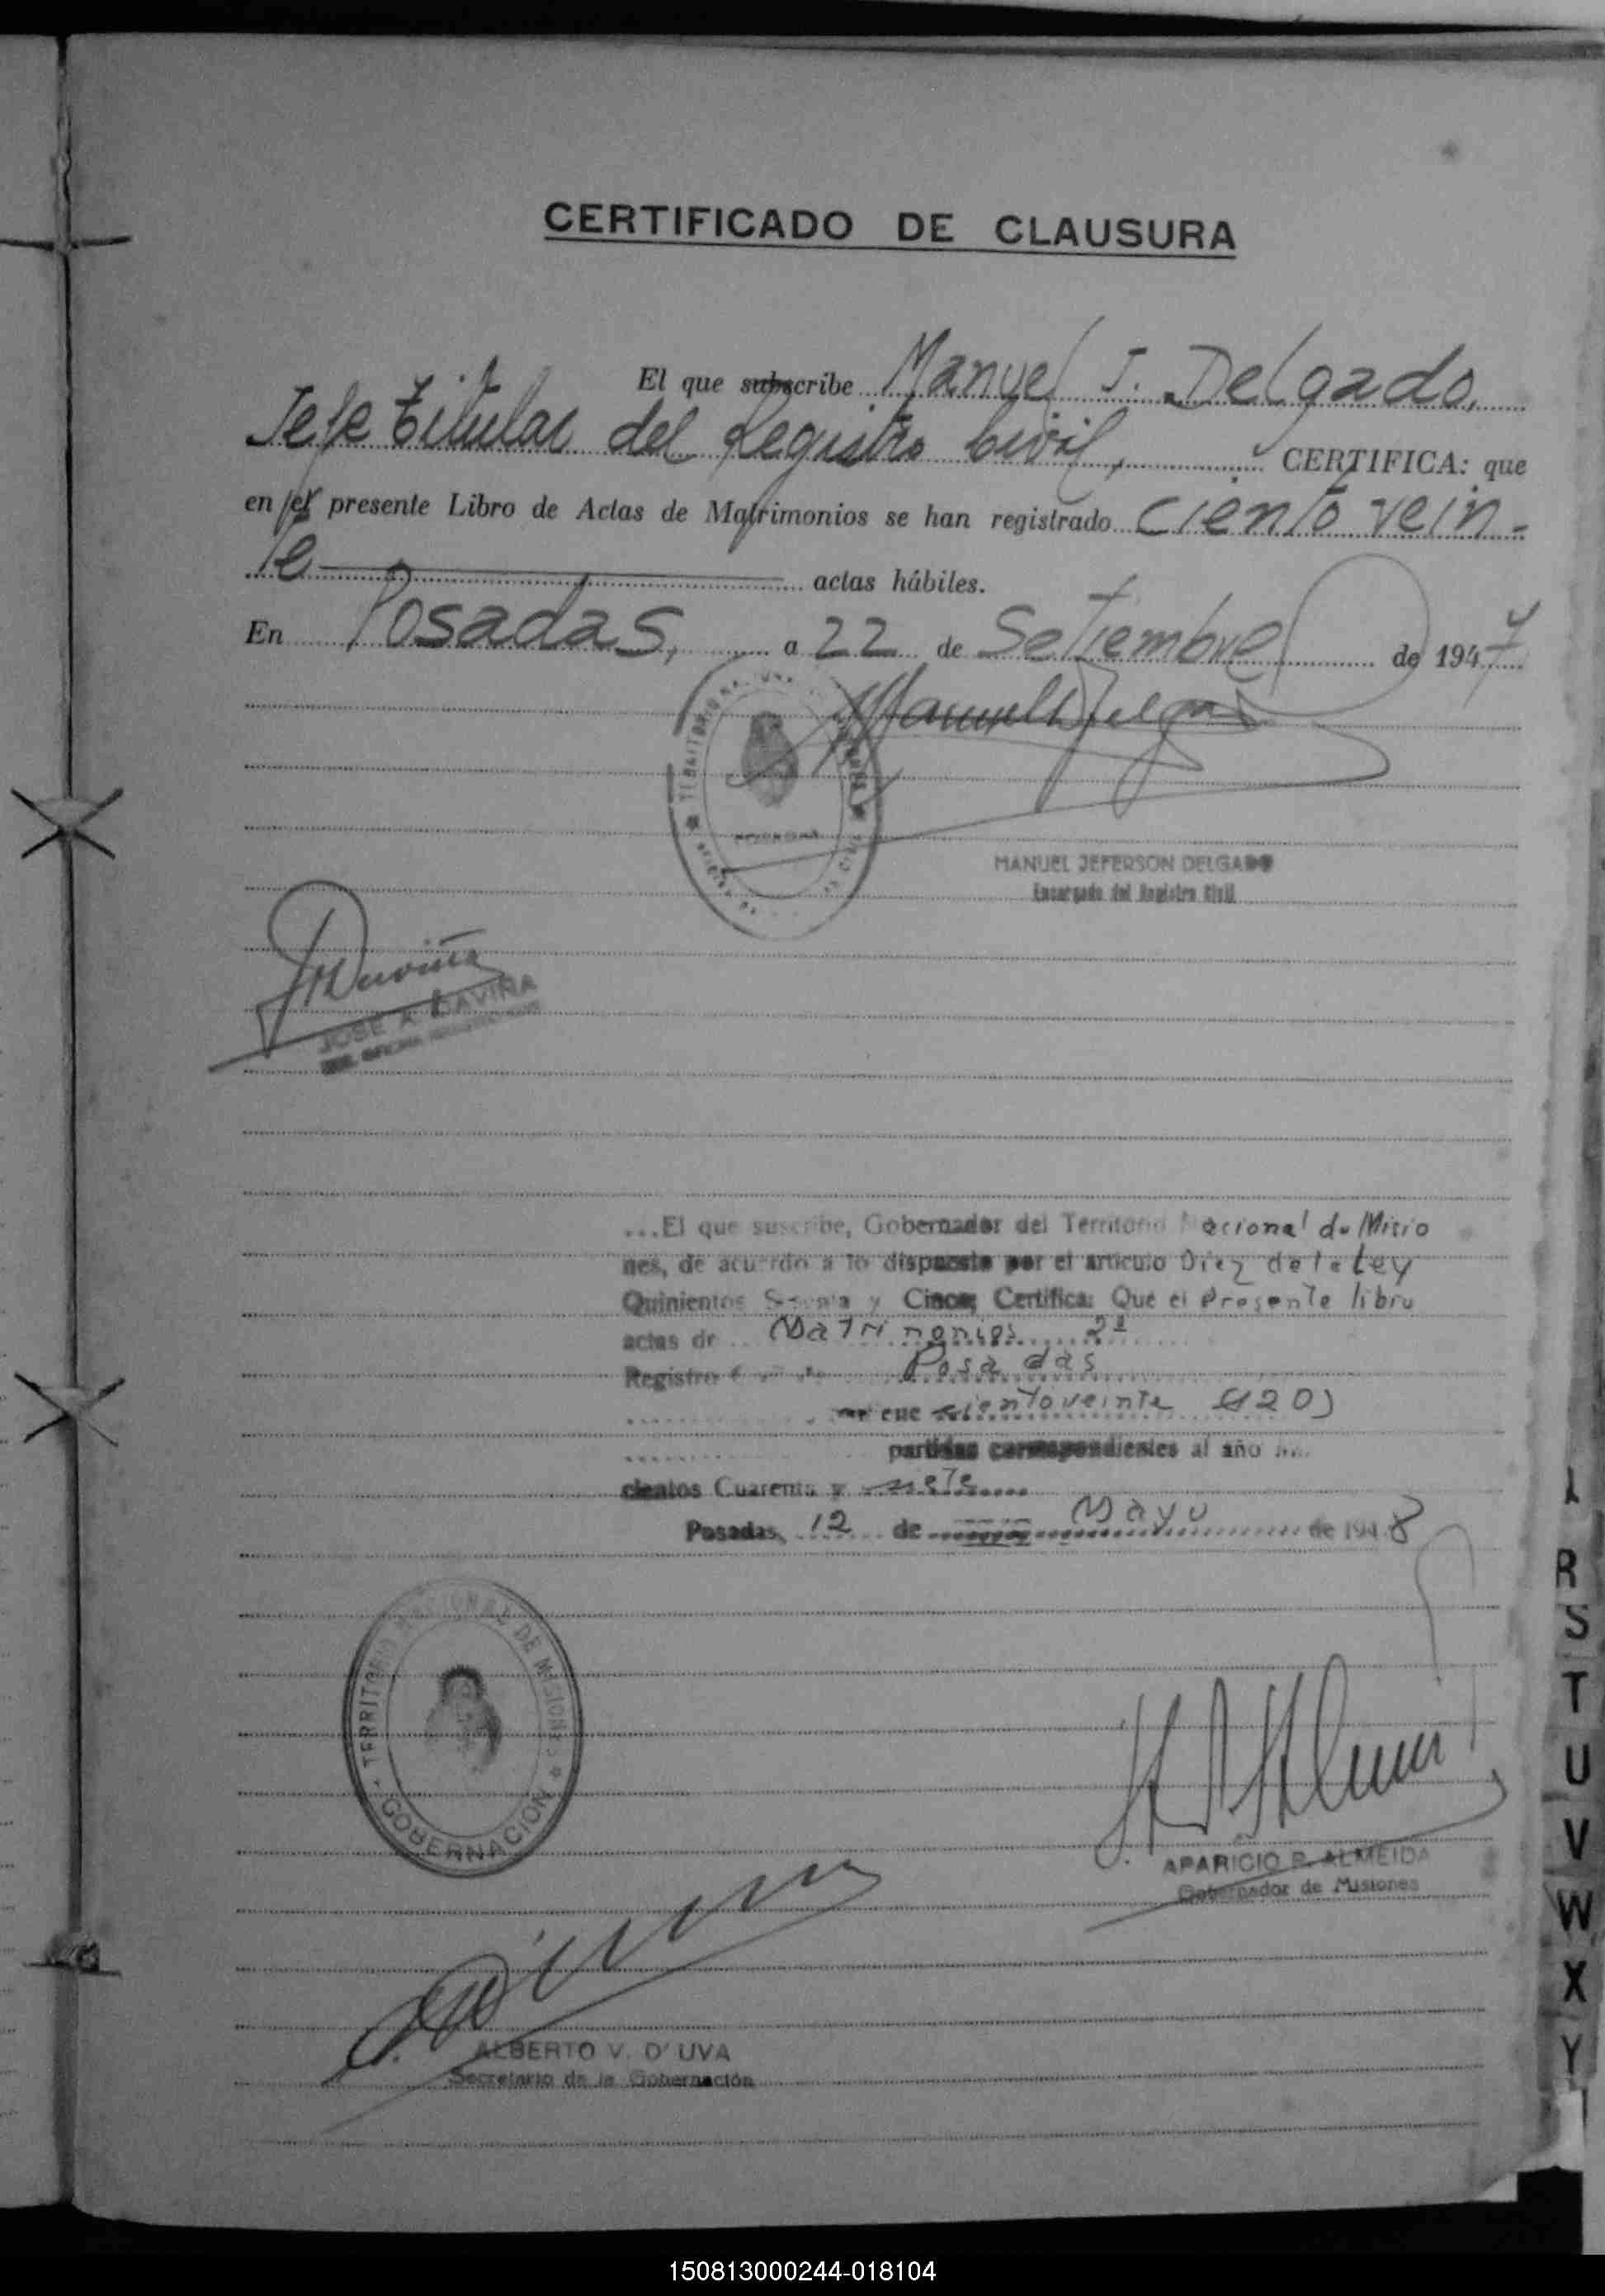 CERTIFICADO DE CLAUSURA
El que subscribe Manuel J. Delgado,
Jefe titular del Registro Civil, CERTIFICA: que
en el presente Libro de Actas de Matrimonios se han registrado ciento vein-
te actas hábiles.
En Posadas, a 22 de Setiembre de 1947
MANUEL JEFERSON DELGADO
Encargado del Registro Civil
JOSE A. DAVIÑA
...El que suscribe, Gobernador del Territorio Nacional de Misio
nes, de acuerdo a lo dispuesto por el artículo Diez de la Ley
Quinientos Sesenta y Cinco; Certifica: Que el Presente libro
actas de Matrimonios 2ª
Registro Posadas
que ciento veinte (120)
partidas correspondientes al año
cientos Cuarenta y siete
Posadas, 12 de Mayo de 1948
TERRITORIO NACIONAL DE MISIONES
GOBERNACION
APARICIO P. ALMEIDA
Gobernador de Misiones
ALBERTO V. D'UVA
Secretario de la Gobernación
R
S
T
U
V
W
X
Y
150813000244-018104